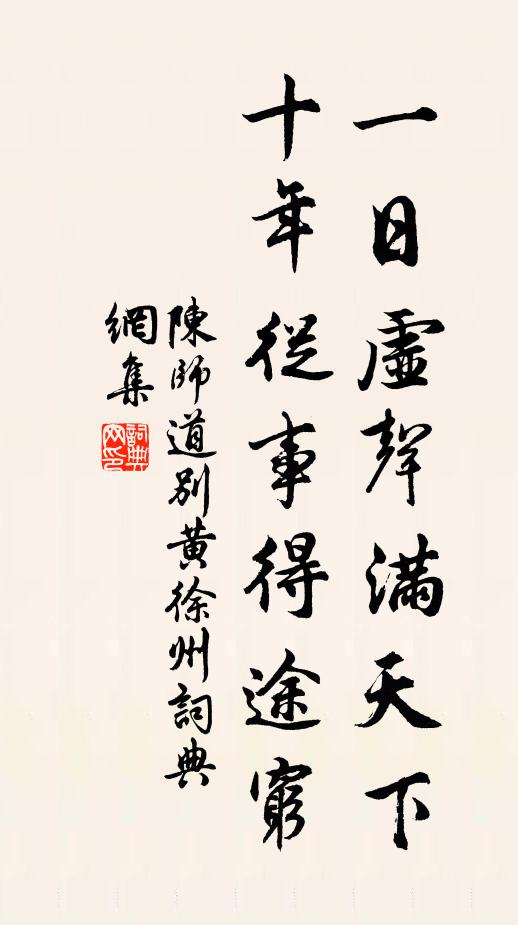 一日虛聲滿天下
十年從事得途窮
陳師道別黃徐州詞典
網集
詞典
网印